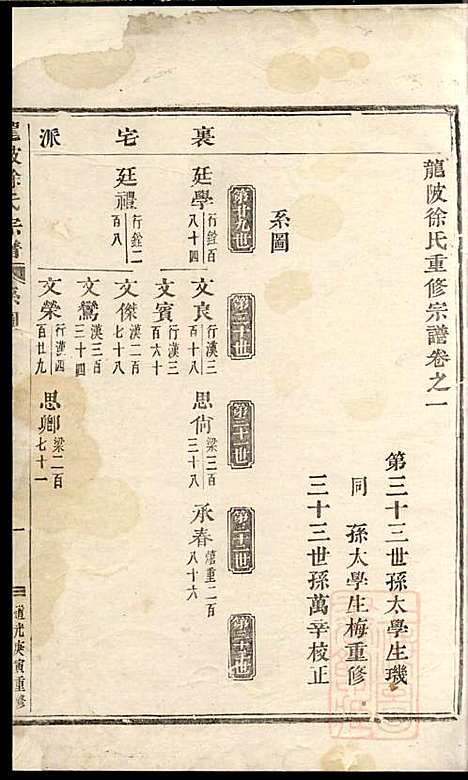 龍陂徐氏重修宗譜卷之一
第三十三世孫太學生璣
同 孫太學生梅重修
三十三世孫萬辛校正
系圖
第廿九世
第三十世
第三十一世
第三十二世
第三十三世
裏宅派
廷學 行銓百八十四
廷禮 行銓二百八
文良 行漢三百十八
文賓 行漢三百六十
文傑 漢二百七十八
文鸞 漢三百三十四
文榮 行漢四百廿九
思尙 梁三百三十八
思卿 梁二百七十一
承春 熺重二百八十六
龍陂徐氏宗譜
系圖
一
道光庚寅重修